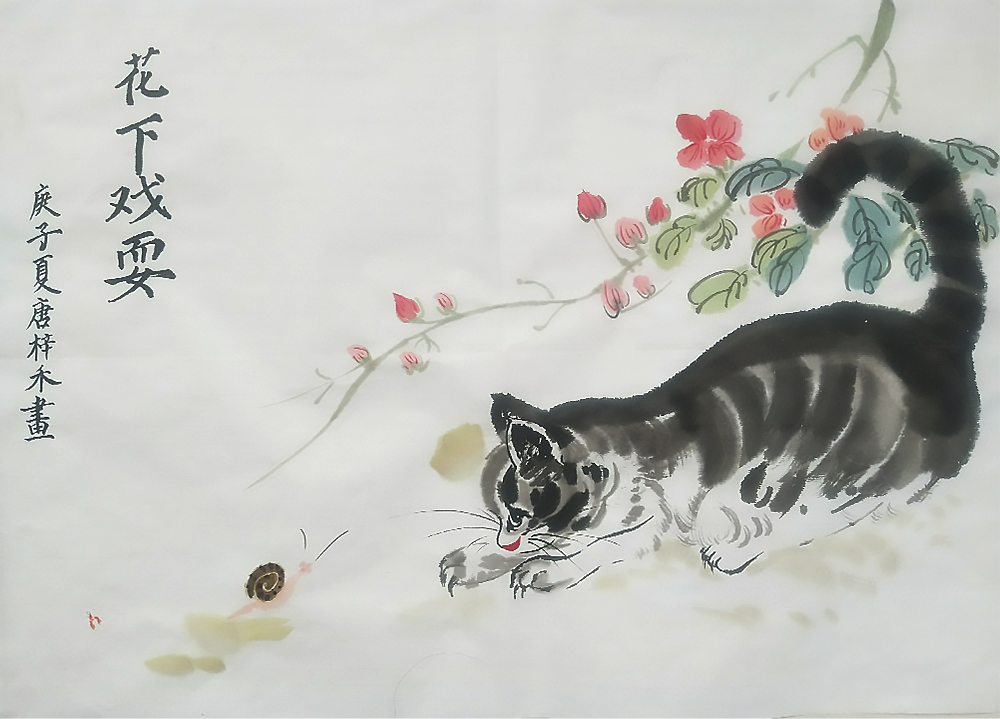 花下戏耍
庚子夏唐梓禾畫